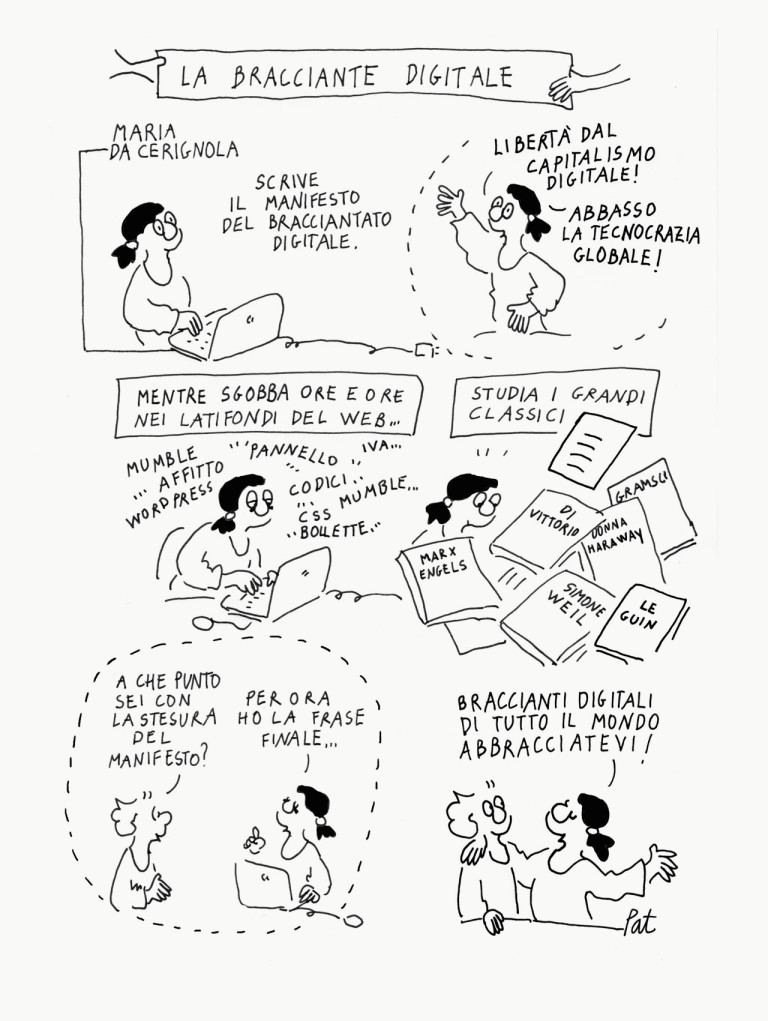 LA BRACCIANTE DIGITALE
MARIA
DA CERIGNOLA
SCRIVE
IL MANIFESTO
DEL BRACCIANTATO
DIGITALE.
LIBERTÀ DAL
CAPITALISMO
DIGITALE!
ABBASSO
LA TECNOCRAZIA
GLOBALE!
MENTRE SGOBBA ORE E ORE
NEI LATIFONDI DEL WEB...
MUMBLE
... AFFITTO
WORDPRESS
"PANNELLO ..
IVA...
CODICI..
... MUMBLE...
CSS
"BOLLETTE."
STUDIA I GRANDI
CLASSICI
MARX
ENGELS
DI
VITTORIO
DONNA
HARAWAY
GRAMSCI
SIMONE
WEIL
LE
GUIN
A CHE PUNTO
SEI CON
LA STESURA
DEL
MANIFESTO?
PER ORA
HO LA FRASE
FINALE...
BRACCIANTI DIGITALI
DI TUTTO IL MONDO
ABBRACCIATEVI!
Pat